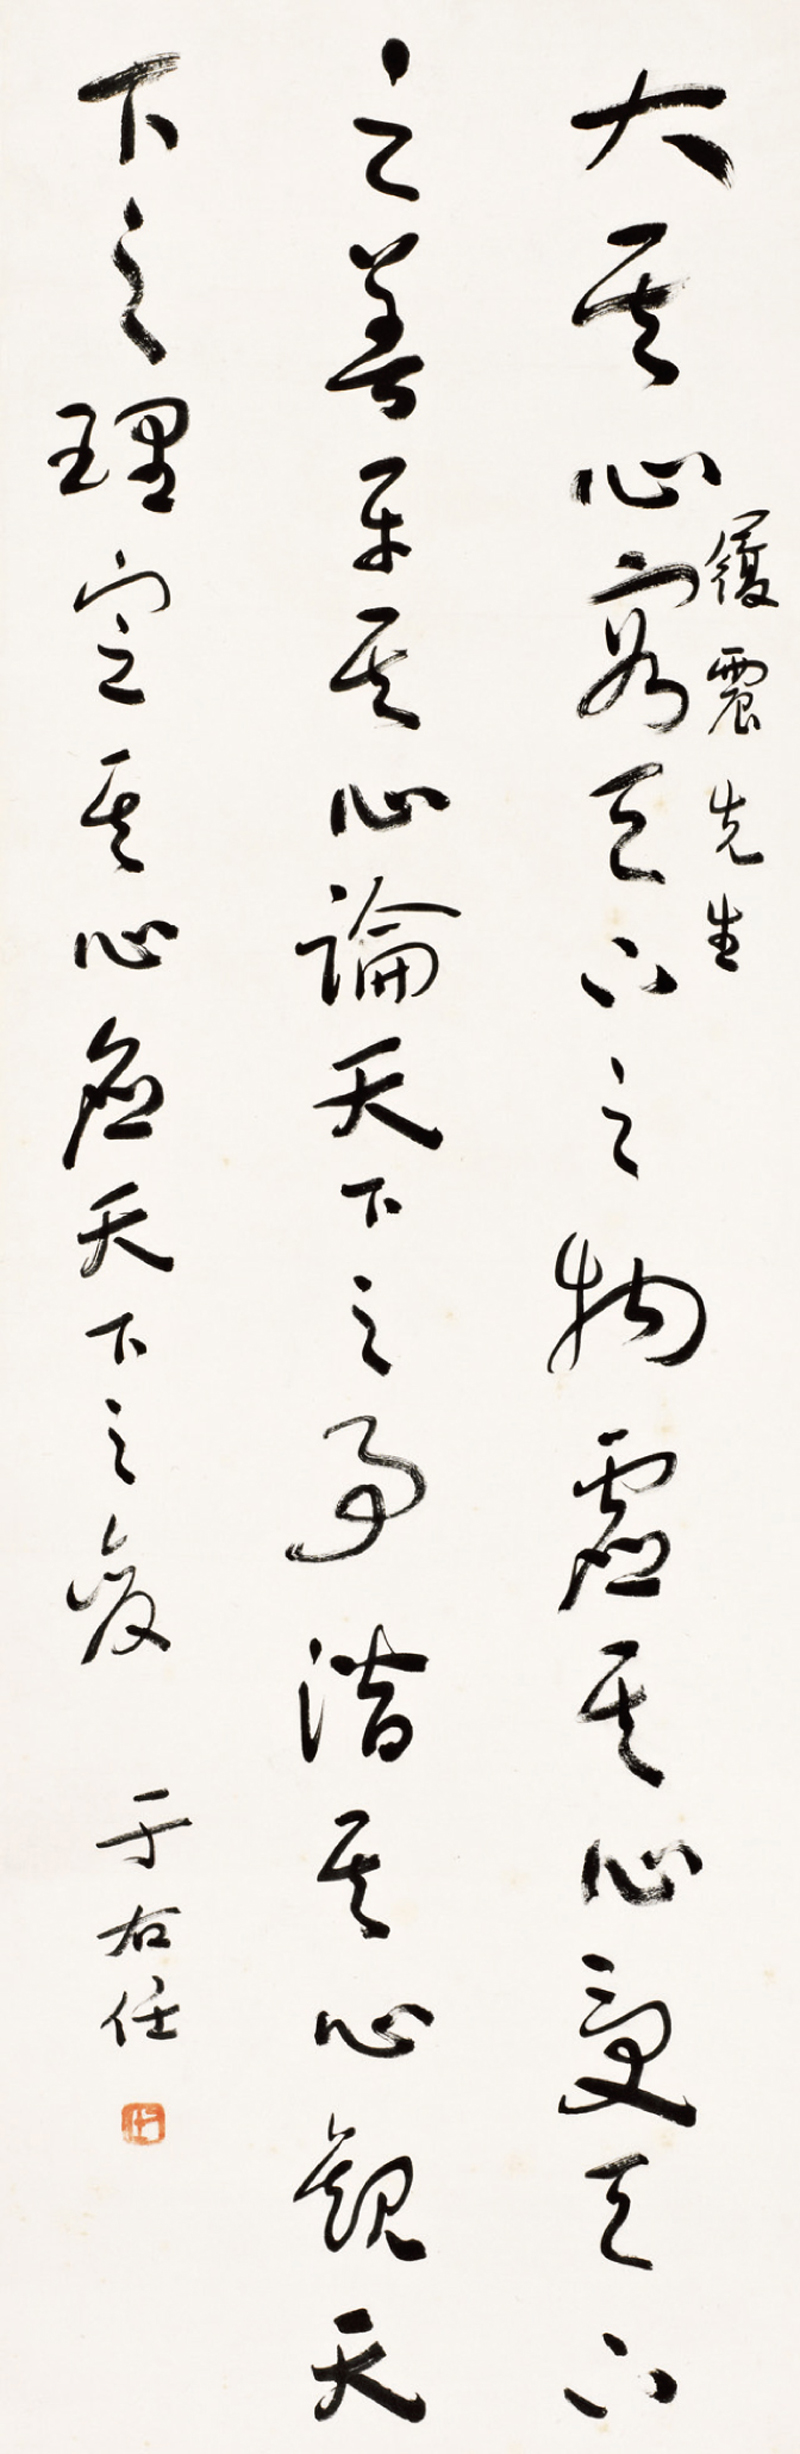 大其心容天下之物虛其心受天下
履震先生
之善平其心論天下之事潛其心觀天
下之理定其心應天下之變
于右任